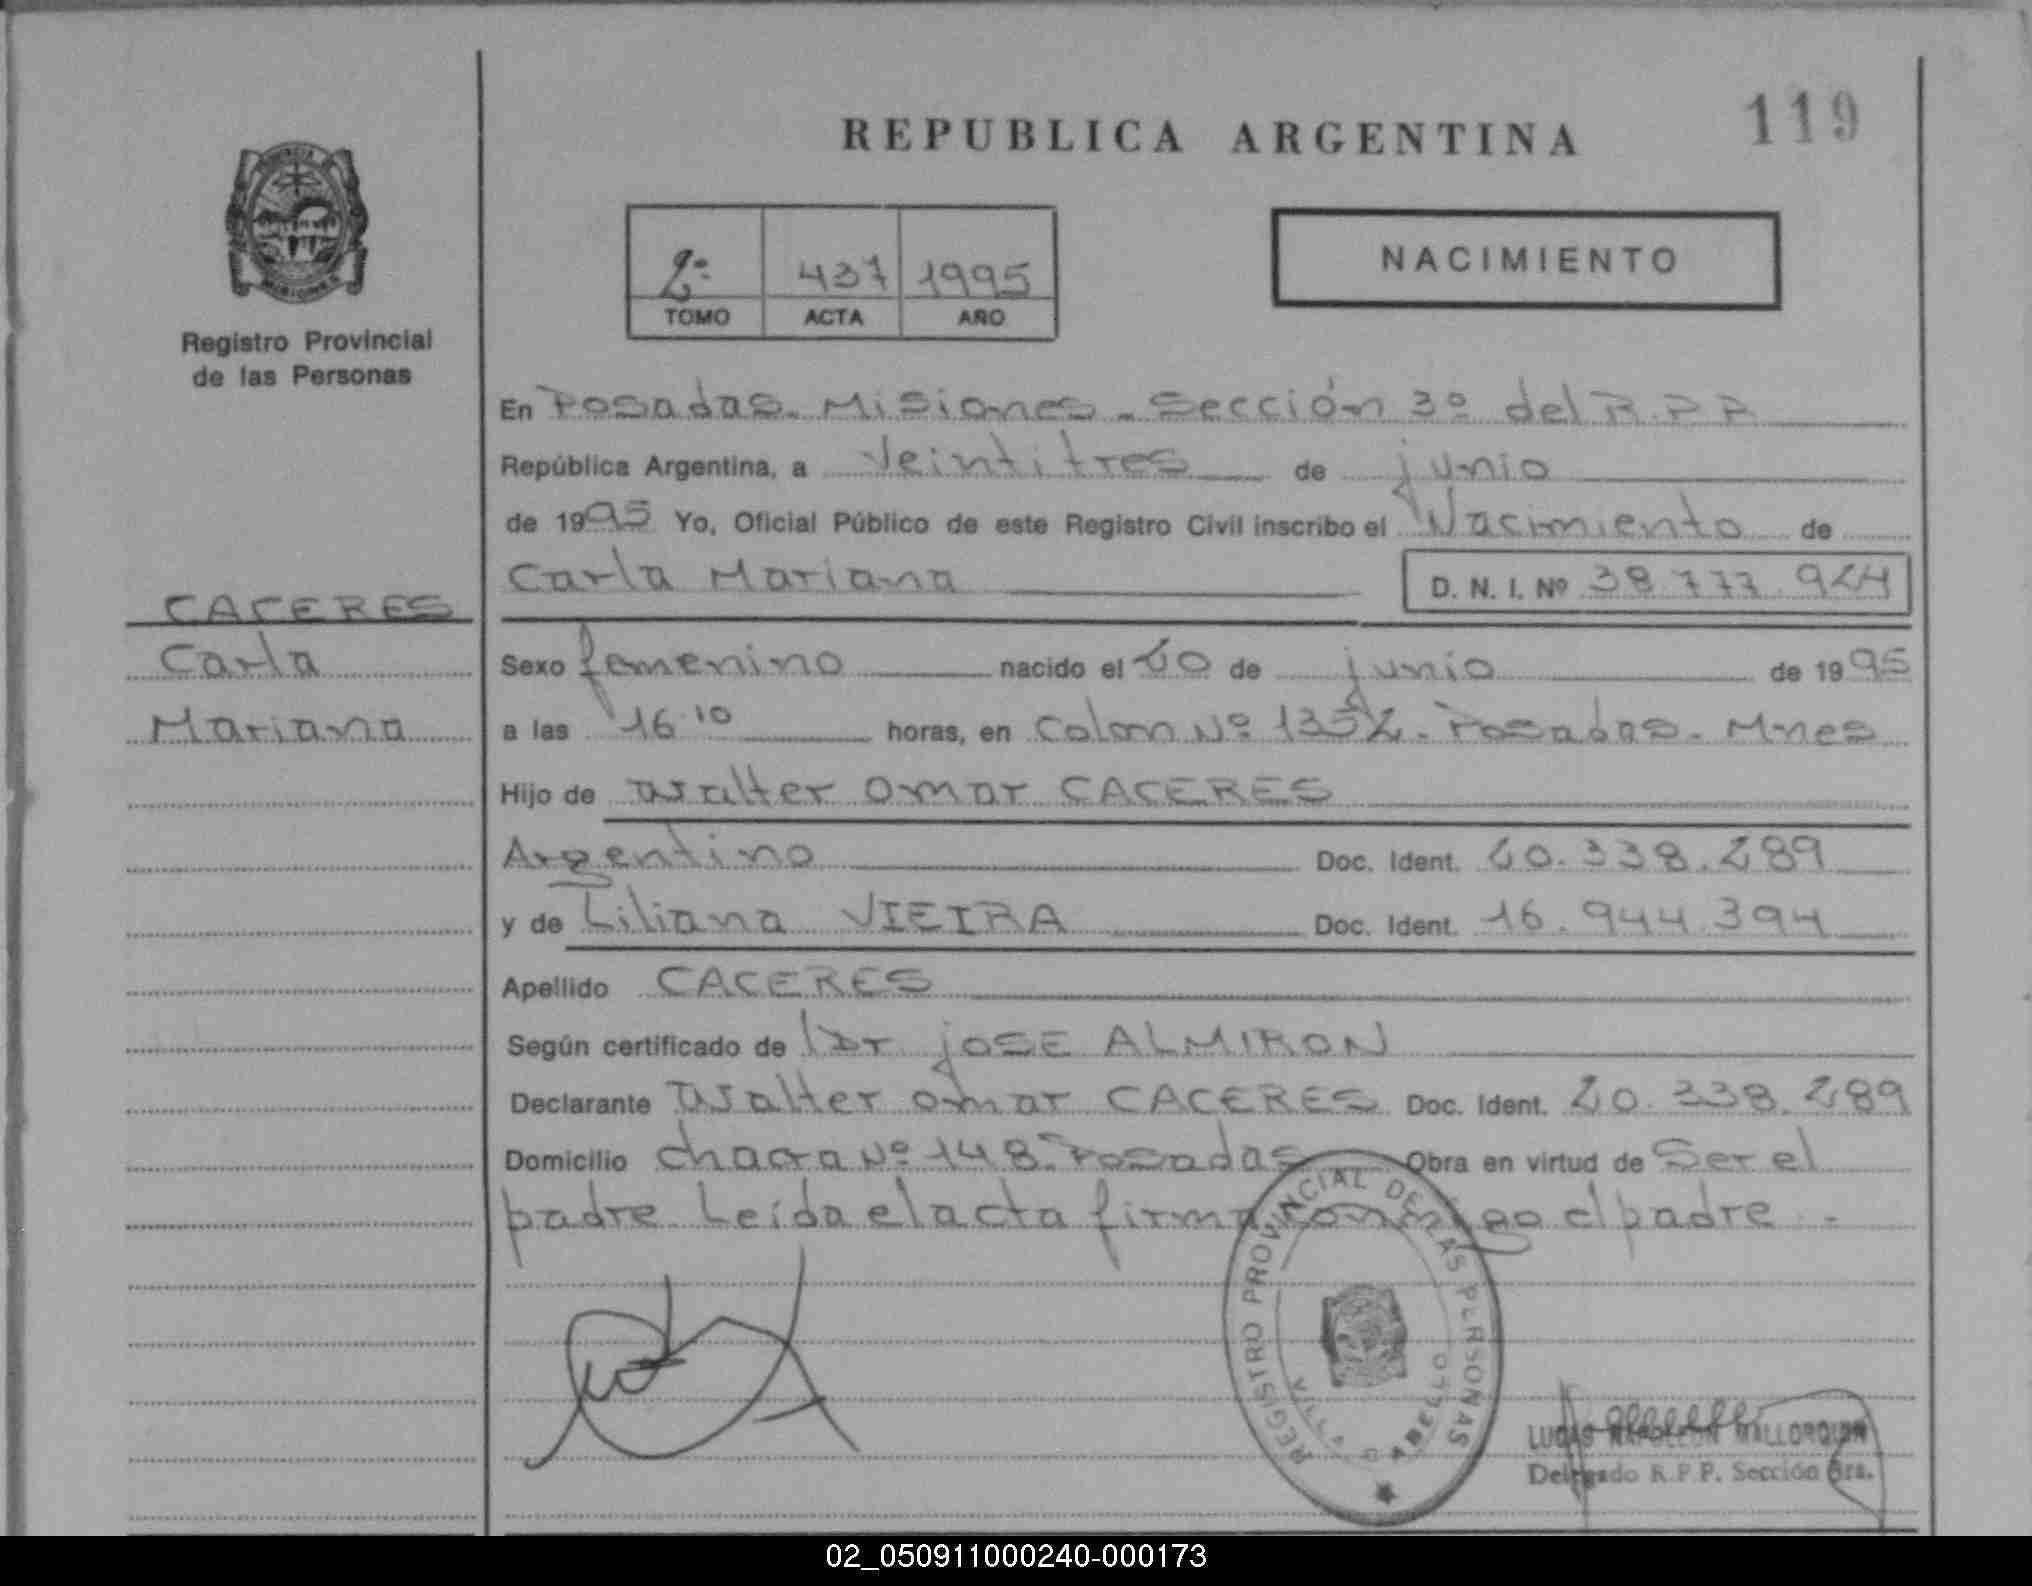 REPUBLICA ARGENTINA
119
2º 437 1995
TOMO ACTA AÑO
NACIMIENTO
Registro Provincial
de las Personas
En Posadas. Misiones. Sección 3º del R.P.P.
República Argentina, a Veintitres de junio
de 1995 Yo, Oficial Público de este Registro Civil inscribo el Nacimiento de
Carla Mariana D. N. I. Nº 38.777.924
CACERES
Carla
Mariana
Sexo femenino nacido el 20 de junio de 1995
a las 16.10 horas, en Colon Nº 1352. Posadas. Mnes
Hijo de Walter Omar CACERES
Argentino Doc. Ident. 20.338.289
y de Liliana VIEIRA Doc. Ident. 16.944.394
Apellido CACERES
Según certificado de Dr José ALMIRON
Declarante Walter Omar CACERES Doc. Ident. 20.338.289
Domicilio chacra Nº 148. Posadas Obra en virtud de Ser el
padre Leída el acta firma conmigo el padre.-
REGISTRO PROVINCIAL DE LAS PERSONAS
VILLA CABELLO
LUCAS NAPOLEON MALLORQUIN
Delegado R.P.P. Sección 3ra.
02_050911000240-000173